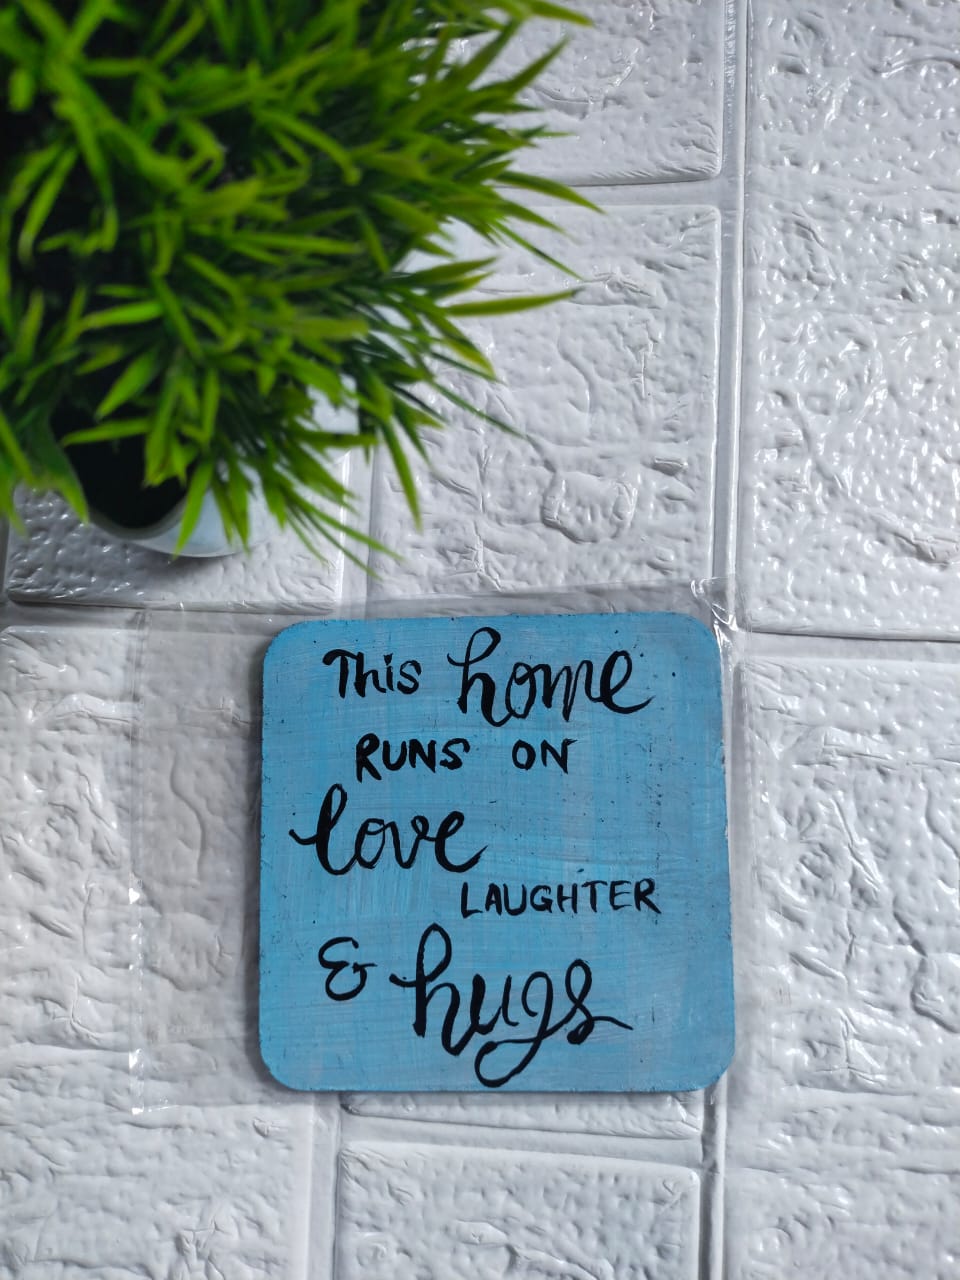 This home
RUNS ON
love
LAUGHTER
& hugs